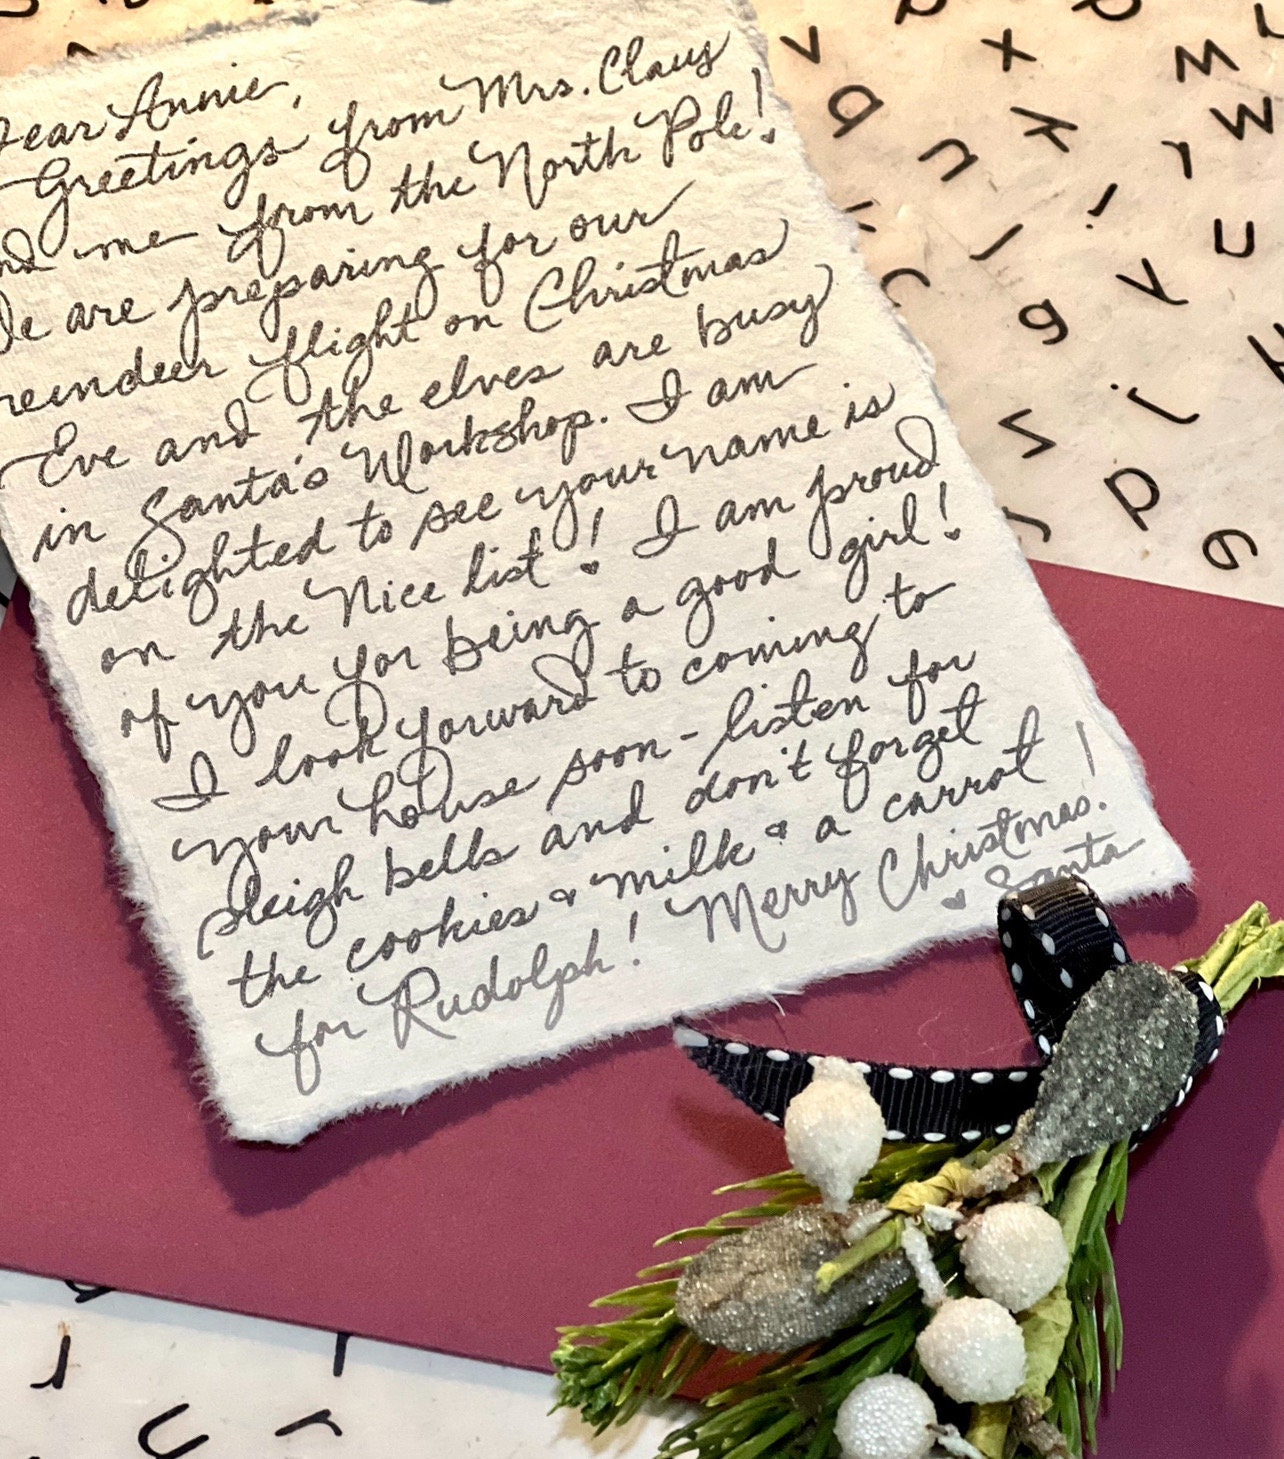 Dear Annie,
Greetings from Mrs. Claus
and me from the North Pole!
We are preparing for our
reindeer flight on Christmas
Eve and the elves are busy
in Santa's Workshop. I am
delighted to see your name is
on the Nice list! I am proud
of you for being a good girl!
I look forward to coming to
your house soon - listen for
sleigh bells and don't forget
the cookies & milk & a carrot
for Rudolph! Merry Christmas!
♥ Santa